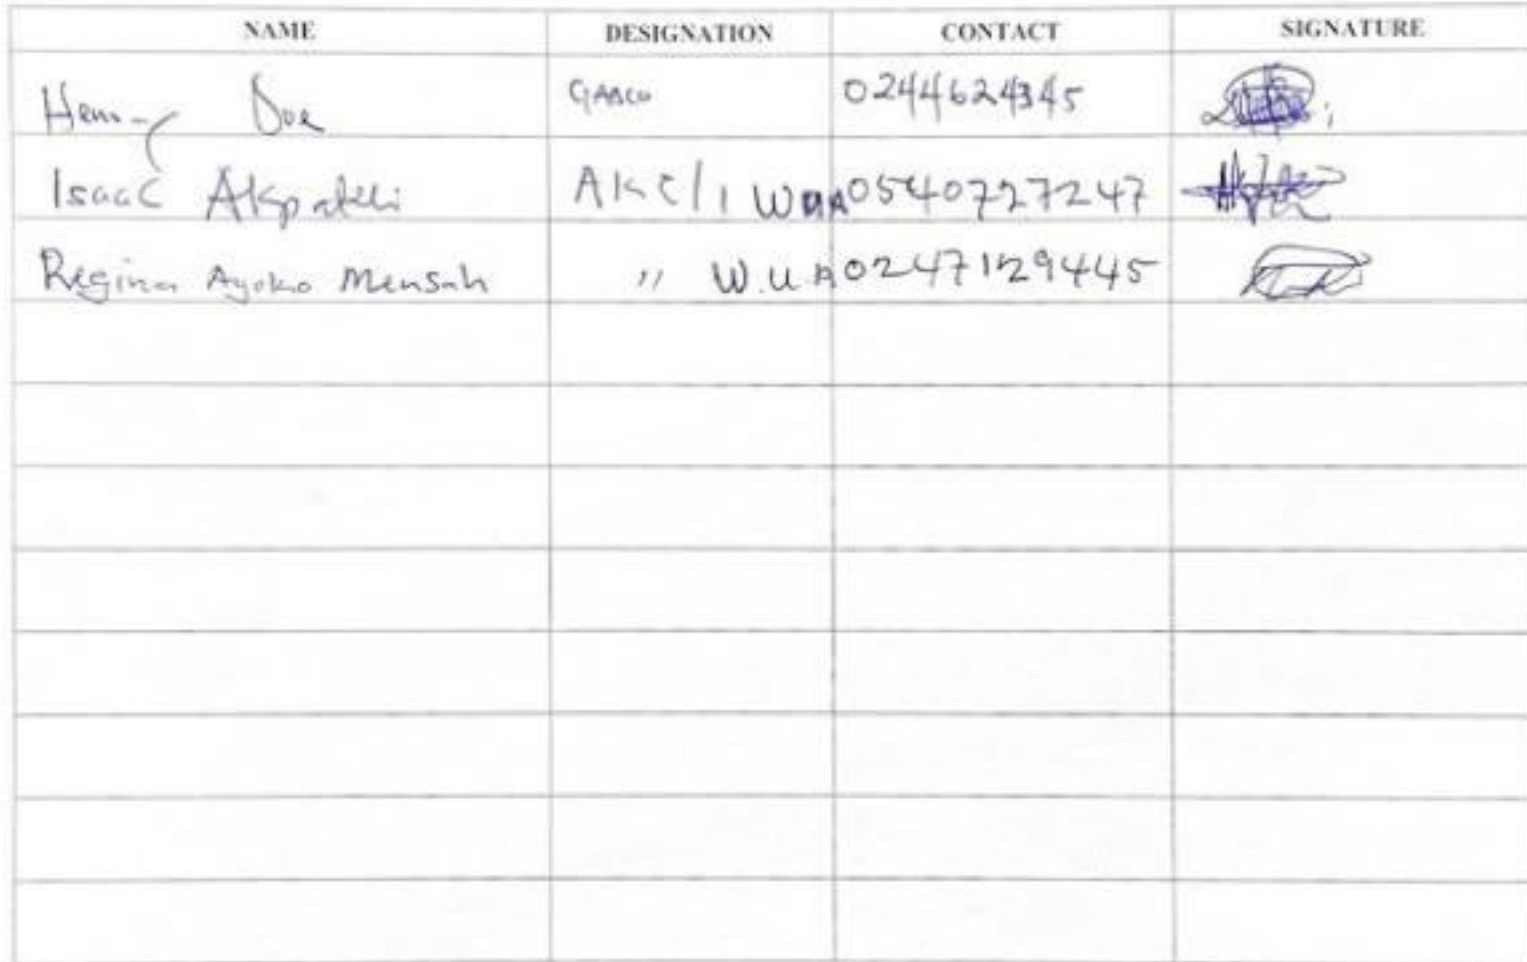 NAME DESIGNATION CONTACT SIGNATURE
Henry Doe 0244624345
Isaac AKC/1 WUA 0540727247
Regina Ayoko Mensah " W.U.A 0247129445